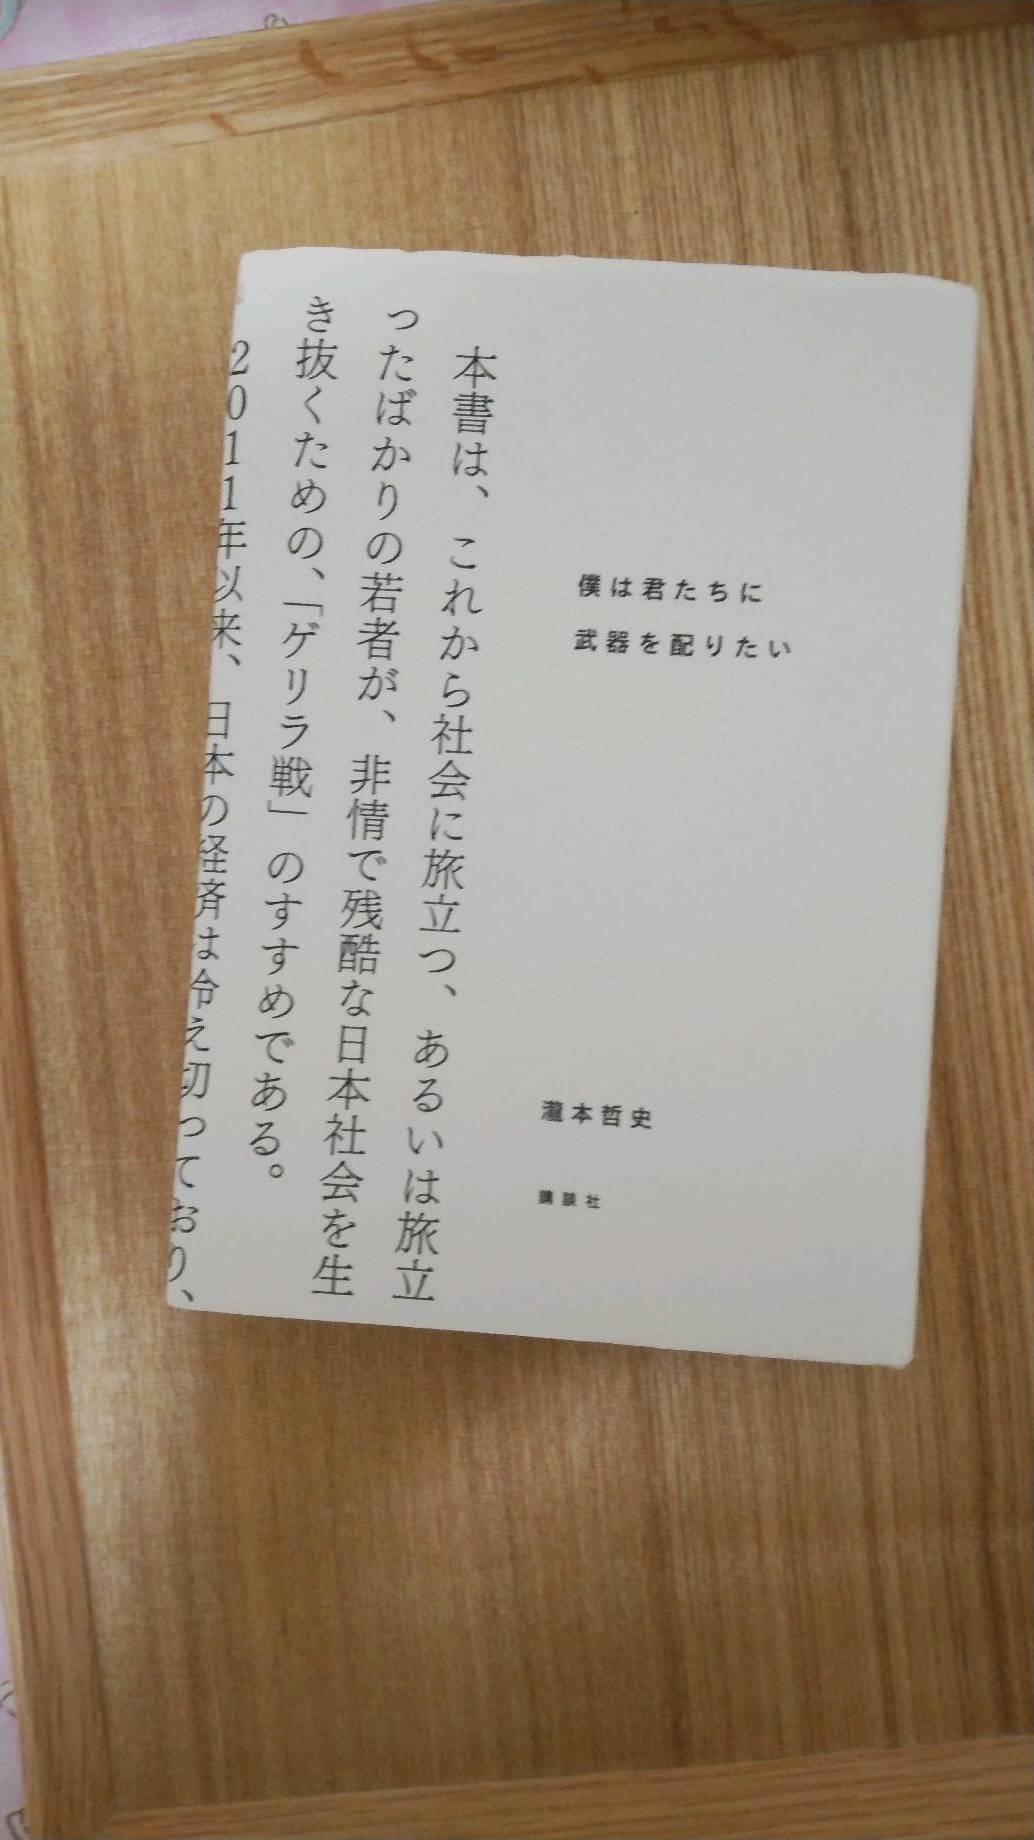 僕は君たちに
武器を配りたい
瀧本哲史
講談社
本書は、これから社会に旅立つ、あるいは旅立
ったばかりの若者が、非情で残酷な日本社会を生
き抜くための、「ゲリラ戦」のすすめである。
2011年以来、日本の経済は冷え切っており、